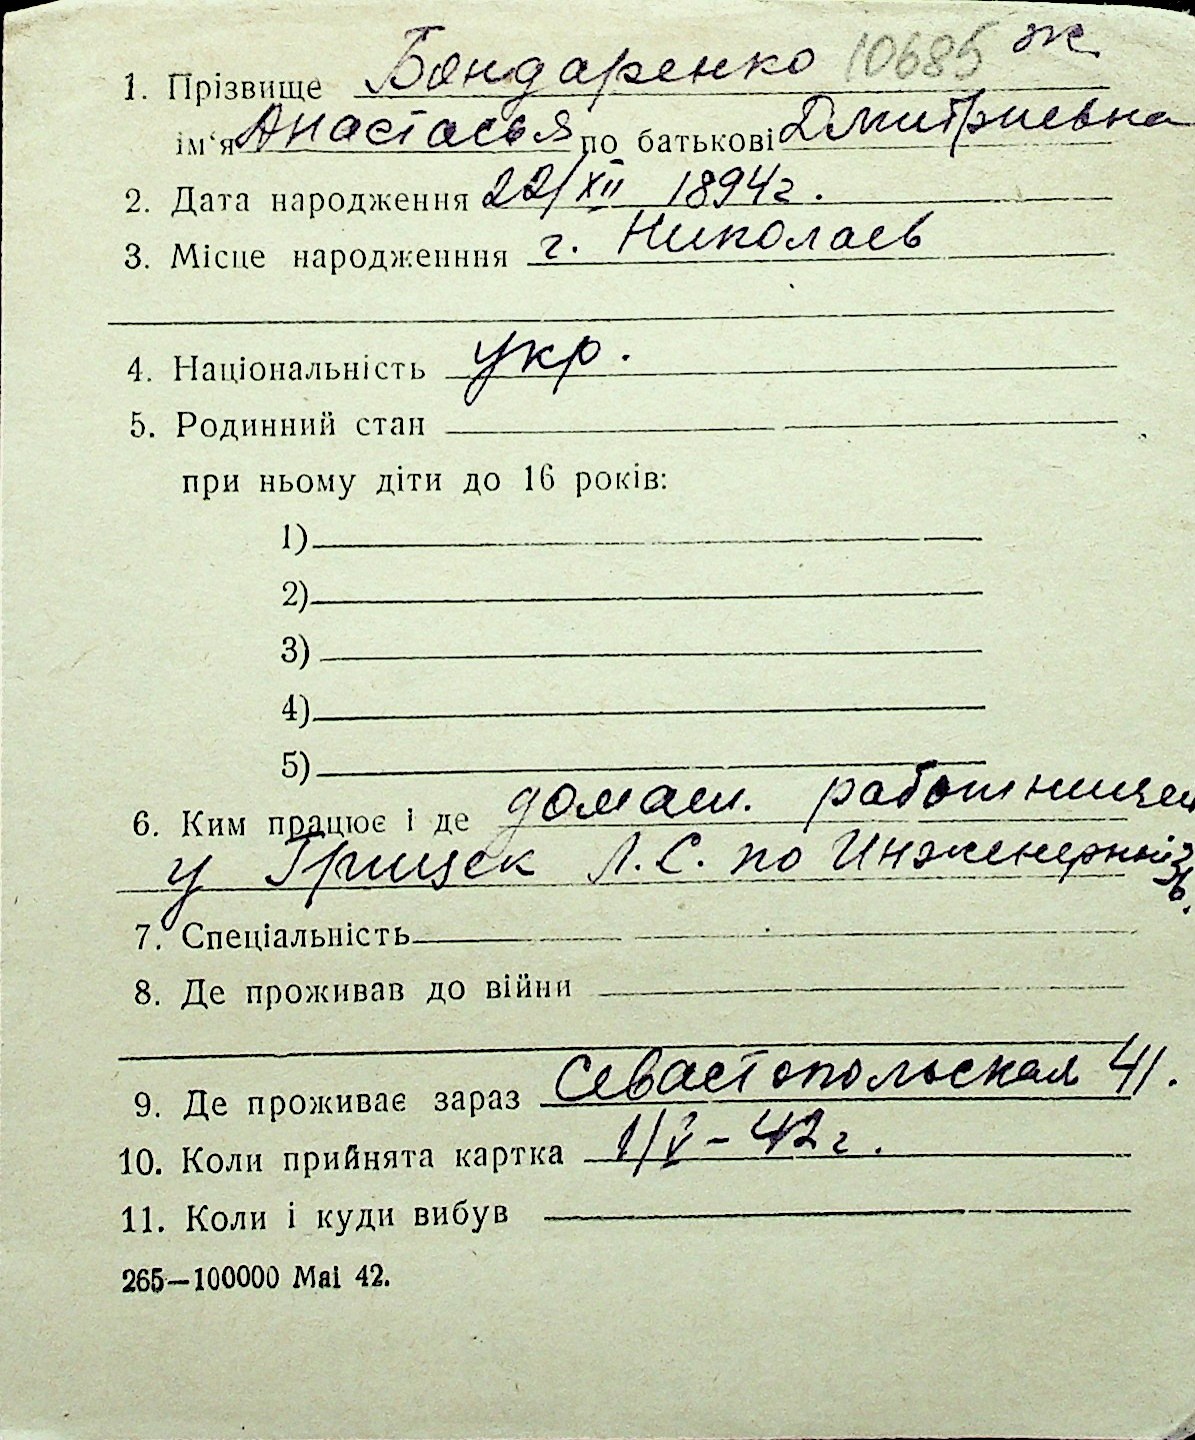 1. Прізвище Бондаренко 10685 ж
ім'я Анастасья по батькові Дмитриевна
2. Дата народження 22/XII 1894г.
3. Місце народженння г. Николаев
4. Національність укр.
5. Родинний стан
при ньому діти до 16 років:
1)
2)
3)
4)
5)
6. Ким працює і де домаш. работницей
у Грищек Л.С. по Инженерной
7. Спеціальність
8. Де проживав до війни
9. Де проживає зараз Севастопольская 41.
10. Коли прийнята картка 1/V-42г.
11. Коли і куди вибув
265—100000 Mai 42.